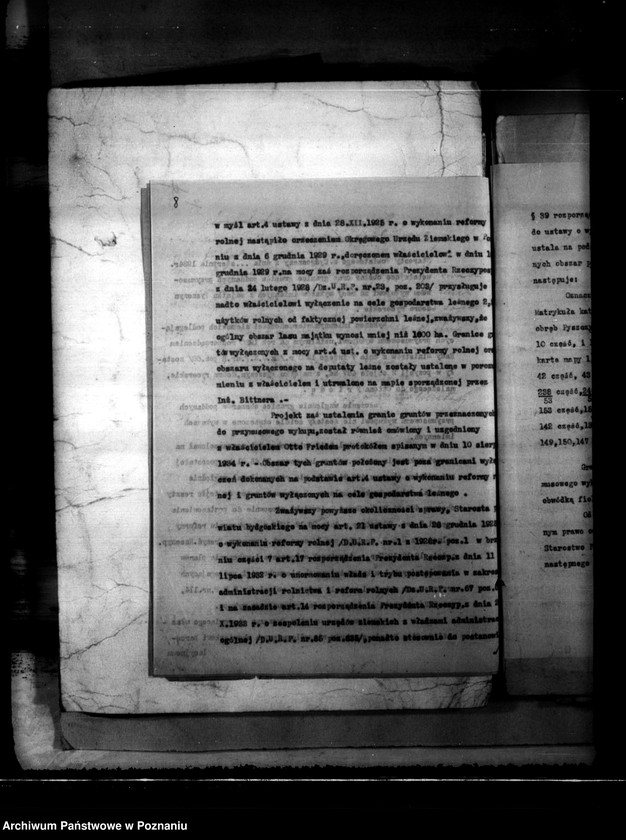 8
w myśl art.4 ustawy z dnia 28.XII.1925 r. o wykonaniu reformy
rolnej nastąpiło orzeczeniem Okręgowego Urzędu Ziemskiego w
niu z dnia 6 grudnia 1929 r., doręczonem właścicielowi w dniu 1
grudnia 1929 r. na mocy zaś rozporządzenia Prezydenta Rzeczypos
z dnia 24 lutego 1928 /Dz.U.R.P. nr.23, poz. 203/ przysługuje
nadto właścicielowi wyłączenie na cele gospodarstwa leśnego 2,
użytków rolnych od faktycznej powierzchni leśnej, zważywszy, że
ogólny obszar lasu majątku wynosi mniej niż 1600 ha. Granice g
tów wyłączonych z mocy art.4 ust. o wykonaniu reformy rolnej or
obszaru wyłączonego na deputaty leśne zostały ustalone w poroz
mieniu z właścicielem i utrwalone na mapie sporządzonej przez
Inż. Bittnera .-
Projekt zaś ustalenia granic gruntów przeznaczonych
do przymusowego wykupu, został również omówiony i uzgodniony
z właścicielem Otto Friedem protokółem spisanym w dniu 10 sierp
1934 r. - Obszar tych gruntów położony jest poza granicami wyłą
czeń dokonanych na podstawie art.4 ustawy o wykonaniu reformy
nej i gruntów wyłączonych na cele gospodarstwa leśnego .
Zważywszy powyższe okoliczności sprawy, Starosta P
wiatu bydgoskiego na mocy art. 21 ustawy z dnia 28 grudnia 1925
o wykonaniu reformy rolnej /D.U.R.P. nr.1 z 1926r. poz.1 w brz
niu części 7 art.17 rozporządzenia Prezydenta Rzeczy. z dnia 11
lipca 1932 r. o unormowaniu władz i trybu postępowania w zakres
administracji rolnictwa i reform rolnych /Dz.U.R.P. nr.67 poz.
i na zasadzie art.14 rozporządzenia Prezydenta Rzeczy. z dnia 2
X.1933 r. o zespoleniu urzędów ziemskich z władzami administrac
ogólnej /D.U.R.P. nr.85 poz.635/, ponadto stosownie do postanow
§ 39 rozporzą
do ustawy o wy
ustala na pod
nych obszar
następuje:
Oznacz
Matrykuła kat
obręb Ryszew
10 część, i
karta mapy 1
42 część, 43
238 część, 24
53
153 część, 15
142 część, 1
149, 150, 147
Gr
musowego wy
obwódką fi
nym prawo
Starostwo P
następnego
Archiwum Państwowe w Poznaniu